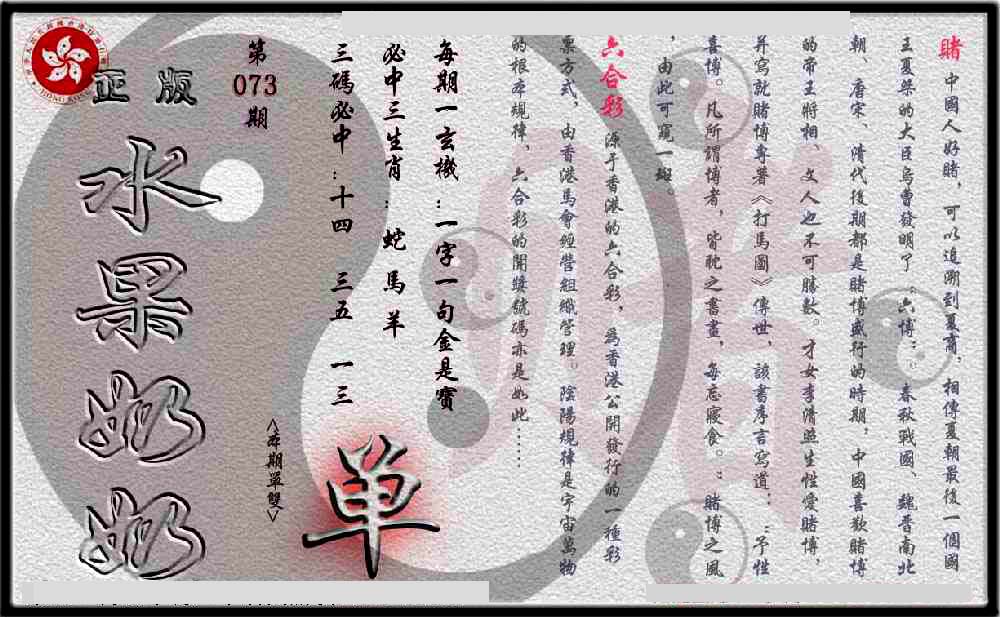 賭 中國人好賭，可以追溯到夏商，相傳夏朝最後一個國
王夏桀的大臣烏曹發明了“六博”，春秋戰國、魏晉南北
朝、唐宋、清代後期都是賭博盛行的時期，中國喜歡賭博
的帝王將相、文人也不可勝數。才女李清照生性愛賭博，
并寫就賭博專著《打馬圖》傳世，該書序言寫道：“予性
喜博。凡所謂博者，皆耽之晝畫，每忘寢食。”賭博之風
，由此可窺一斑。
六合彩 源于香港的六合彩，為香港公開發行的一種彩
票方式，由香港馬會經營組織管理。陰陽規律是宇宙萬物
的根本規律，六合彩的開獎號碼亦是如此……
每期一玄機：一字一句金是寶
必中三生肖：蛇 馬 羊
三碼必中：十四 三五 一三
第
073
期
正版
水果奶奶
<本期單雙>
单